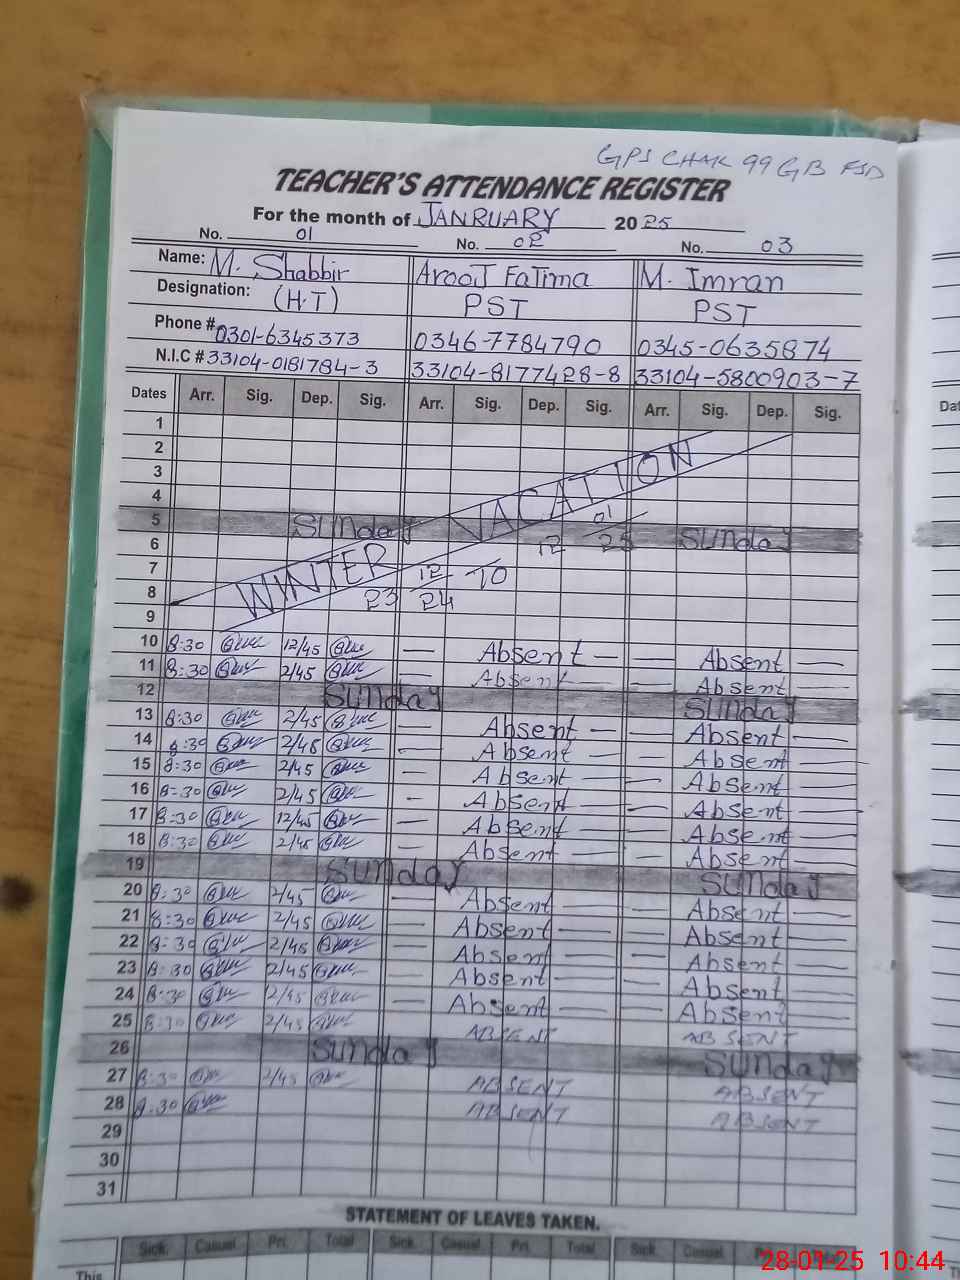 GPS CHAK 99 GB FSD
TEACHER'S ATTENDANCE REGISTER
For the month of JANRUARY 2025
No. 01 No. 02 No. 03
Name: M. Shabbir Arooj Fatima M. Imran
Designation: (H.T) PST PST
Phone # 0301-6345373 0346-7784790 0345-0635874
N.I.C # 33104-0181784-3 33104-8177428-8 33104-5800903-7
Dates Arr. Sig. Dep. Sig. Arr. Sig. Dep. Sig. Arr. Sig. Dep. Sig.
1
2
3
4
5 Sunday Sunday
6
7
8
9
WINTER VACATION
23 12/24 TO 12 01/25
10 8:30 12/45 Absent Absent
11 8:30 2/45 Absent Absent
12 Sunday Sunday
13 8:30 2/45 Absent Absent
14 8:30 2/45 Absent Absent
15 8:30 2/45 Absent Absent
16 8:30 2/45 Absent Absent
17 8:30 12/45 Absent Absent
18 8:30 2/45 Absent Absent
19 Sunday Sunday
20 8:30 2/45 Absent Absent
21 8:30 2/45 Absent Absent
22 8:30 2/45 Absent Absent
23 8:30 2/45 Absent Absent
24 8:30 2/45 Absent Absent
25 8:30 2/45 ABSENT ABSENT
26 Sunday Sunday
27 8:30 2/45 ABSENT ABSENT
28 8:30 ABSENT ABSENT
29
30
31
STATEMENT OF LEAVES TAKEN.
Sick. Casual Pri. Total Sick. Casual Pri. Total Sick. Casual
This
28-01-25 10:44